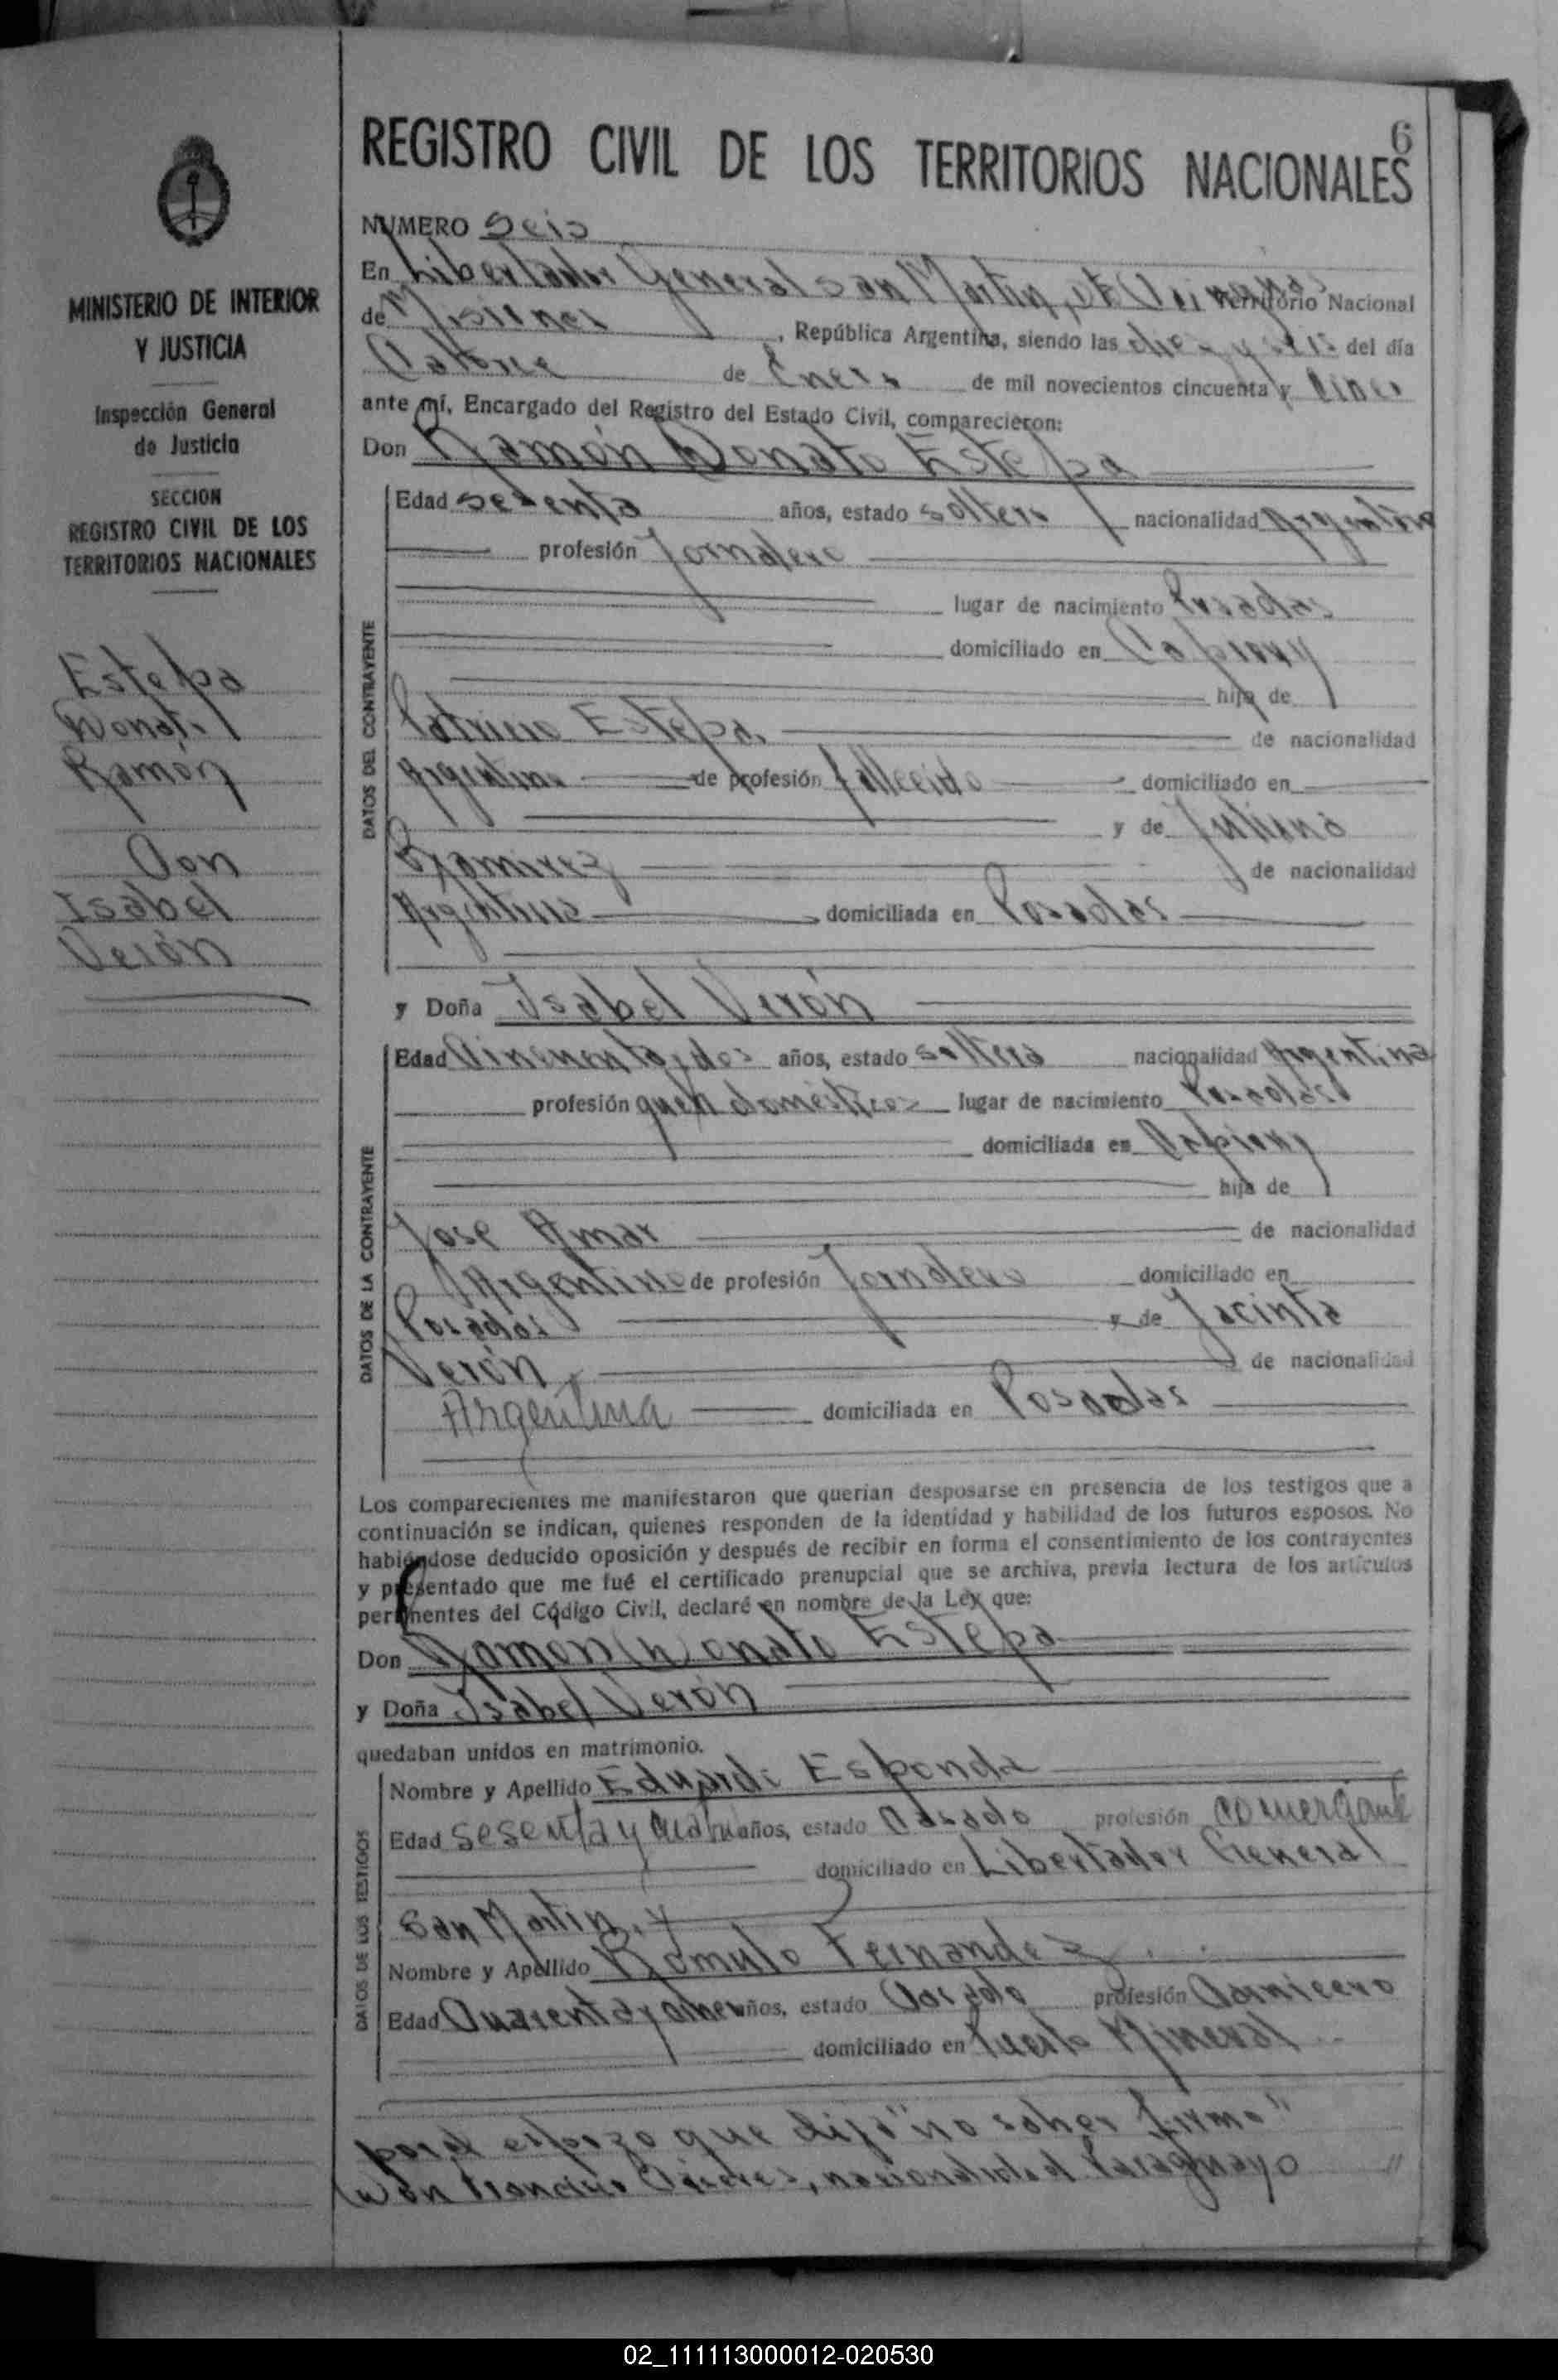 6
REGISTRO CIVIL DE LOS TERRITORIOS NACIONALES
MINISTERIO DE INTERIOR
Y JUSTICIA
Inspección General
de Justicia
SECCION
REGISTRO CIVIL DE LOS
TERRITORIOS NACIONALES
Estepa
Donato
Ramón
Con
Isabel
Verón
NUMERO Seis
En Libertador General San Martín, Territorio Nacional
de Misiones, República Argentina, siendo las diez y seis del día
Catorce de Enero de mil novecientos cincuenta y Cinco
ante mí, Encargado del Registro del Estado Civil, comparecieron:
Don Ramón Donato Estepa
DATOS DEL CONTRAYENTE
Edad sesenta años, estado soltero nacionalidad Argentino
profesión Jornalero
lugar de nacimiento Posadas
domiciliado en Capiovy
hijo de
Patricio Estepa de nacionalidad
Argentino de profesión fallecido domiciliado en
y de Juliana
Ramirez de nacionalidad
Argentina domiciliada en Posadas
y Doña Isabel Verón
DATOS DE LA CONTRAYENTE
Edad Cincuenta y dos años, estado soltera nacionalidad Argentina
profesión queh domésticos lugar de nacimiento Posadas
domiciliada en Capiovy
hija de
José Amar de nacionalidad
Argentino de profesión Jornalero domiciliado en
Posadas y de Jacinta
Verón, de nacionalidad
Argentina domiciliada en Posadas
Los comparecientes me manifestaron que querían desposarse en presencia de los testigos que a
continuación se indican, quienes responden de la identidad y habilidad de los futuros esposos. No
habiéndose deducido oposición y después de recibir en forma el consentimiento de los contrayentes
y presentado que me fué el certificado prenupcial que se archiva, previa lectura de los artículos
pertinentes del Código Civil, declaré en nombre de la Ley que:
Don Ramón Donato Estepa
y Doña Isabel Verón
quedaban unidos en matrimonio.
DATOS DE LOS TESTIGOS
Nombre y Apellido Eduardo Esponda
Edad sesenta y cuatro años, estado Casado profesión comerciante
domiciliado en Libertador General
San Martín, y
Nombre y Apellido Rómulo Fernandez
Edad Cuarenta y ocho años, estado Casado profesión Carnicero
domiciliado en Puerto Mineral
por el esposo que dijo "no saber firmar"
Don Francisco nacionalidad Paraguayo "
02_111113000012-020530